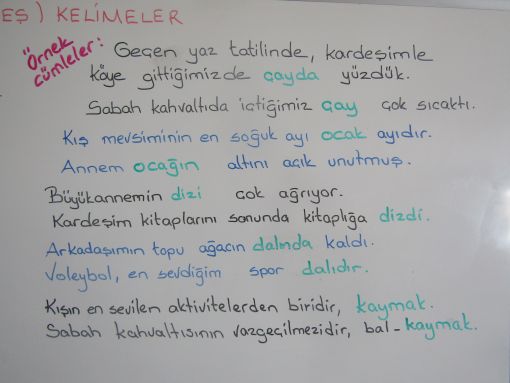 EŞ) KELİMELER
Örnek cümleler:
Geçen yaz tatilinde, kardeşimle
köye gittiğimizde çayda yüzdük.
Sabah kahvaltıda içtiğimiz çay çok sıcaktı.
Kış mevsiminin en soğuk ayı ocak ayıdır.
Annem ocağın altını açık unutmuş.
Büyükannemin dizi çok ağrıyor.
Kardeşim kitaplarını sonunda kitaplığa dizdi.
Arkadaşımın topu ağacın dalında kaldı.
Voleybol, en sevdiğim spor dalıdır.
Kışın en sevilen aktivitelerden biridir, kaymak.
Sabah kahvaltısının vazgeçilmezidir, bal-kaymak.